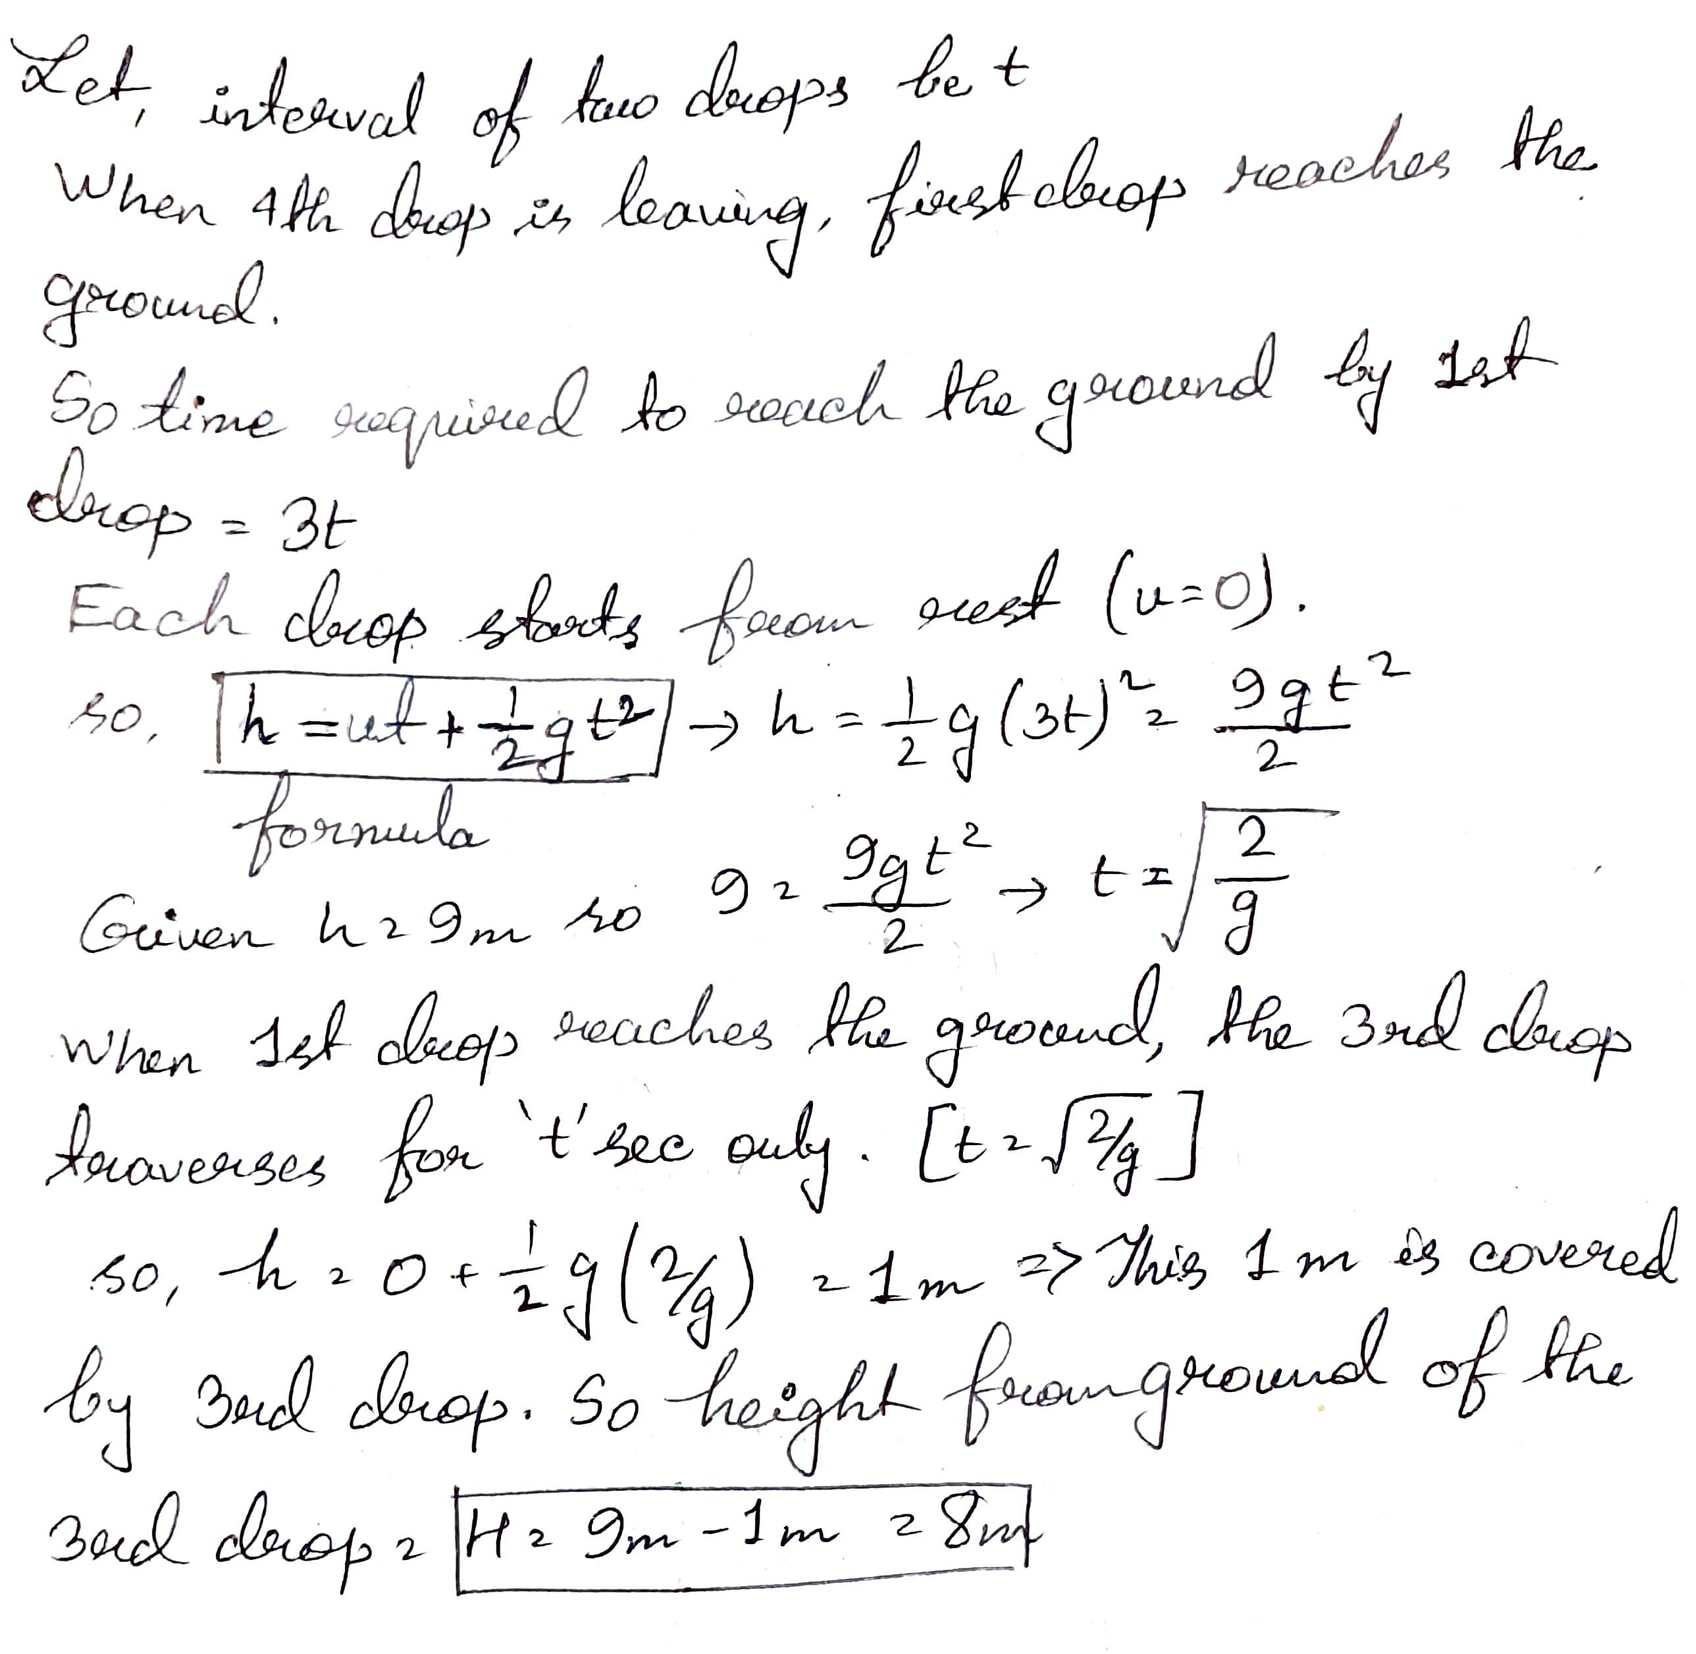 Let, interval of two drops be t
When 4th drop is leaving, first drop reaches the
ground.
So time required to reach the ground by 1st
drop = 3t
Each drop starts from rest (u=0).
so, h = ut + 1/2 g t² → h = 1/2 g (3t)² = 9gt²/2
formula
Given h = 9m so 9 = 9gt²/2 → t = √(2/g)
When 1st drop reaches the ground, the 3rd drop
traverses for 't' sec only. [t = √2/g]
so, h = 0 + 1/2 g (2/g) = 1m => This 1 m is covered
by 3rd drop. So height from ground of the
3rd drop = H = 9m - 1m = 8m